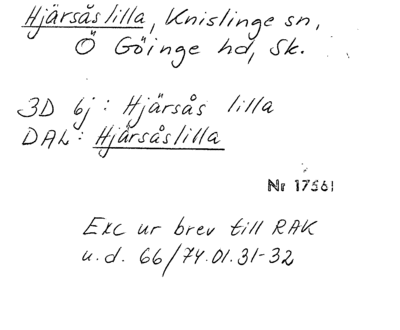 Hjärsåslilla, Knislinge sn,
Ö Göinge hd, Sk.
3D 6j: Hjärsås lilla
DAL: Hjärsåslilla
Nr 17561
Exc ur brev till RAK
u.d. 66/74.01.31-32